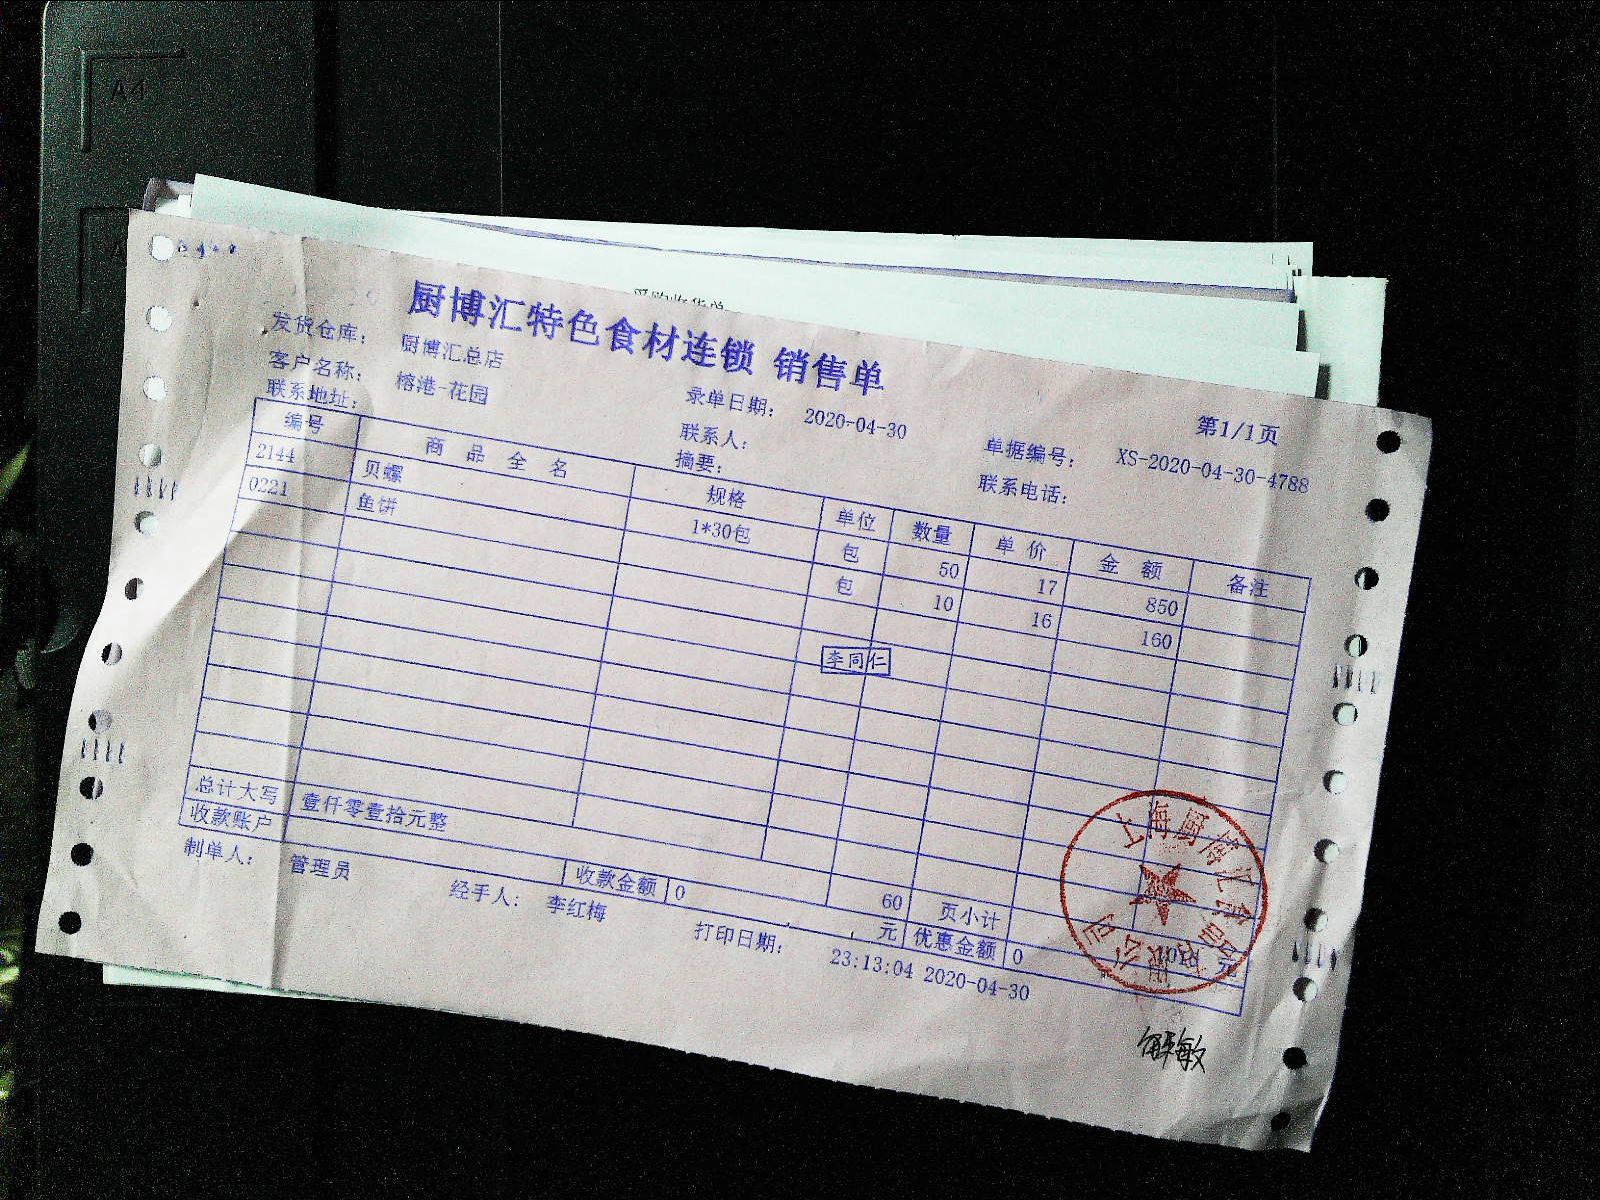 A4
采购收货单
厨博汇特色食材连锁 销售单
第1/1页
发货仓库: 厨博汇总店
录单日期: 2020-04-30
单据编号: XS-2020-04-30-4788
客户名称: 榕港-花园
联系人:
联系电话:
联系地址:
摘要:
编号 商品全名 规格 单位 数量 单价 金额 备注
2144 贝螺 1*30包 包 50 17 850
0221 鱼饼 包 10 16 160
李同仁
总计大写 壹仟零壹拾元整 60 页小计
收款账户 收款金额 0 元 优惠金额 0 元
制单人: 管理员 经手人: 李红梅 打印日期: 23:13:04 2020-04-30
上海厨博汇食品有限公司
解敏